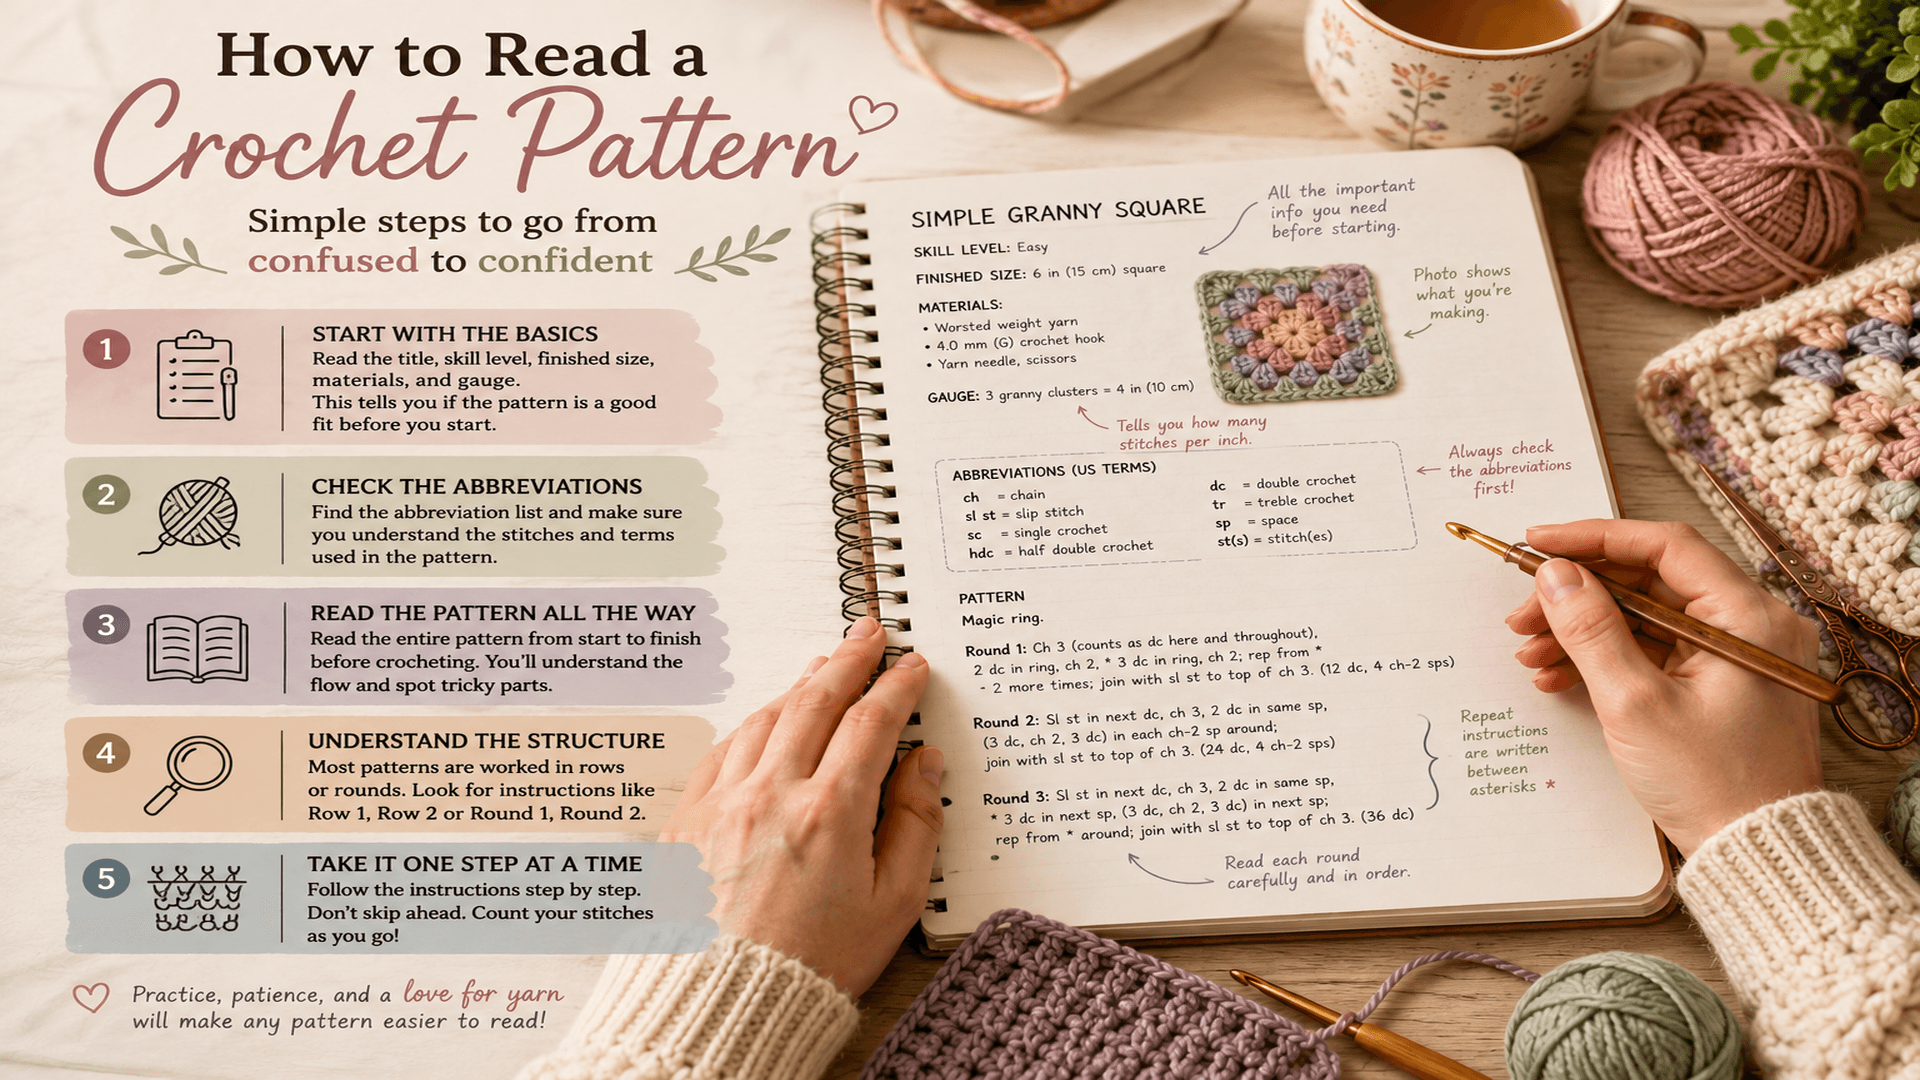 How to Read a
Crochet Pattern
Simple steps to go from
confused to confident
1
START WITH THE BASICS
Read the title, skill level, finished size,
materials, and gauge.
This tells you if the pattern is a good
fit before you start.
2
CHECK THE ABBREVIATIONS
Find the abbreviation list and make sure
you understand the stitches and terms
used in the pattern.
3
READ THE PATTERN ALL THE WAY
Read the entire pattern from start to finish
before crocheting. You'll understand the
flow and spot tricky parts.
4
UNDERSTAND THE STRUCTURE
Most patterns are worked in rows
or rounds. Look for instructions like
Row 1, Row 2 or Round 1, Round 2.
5
TAKE IT ONE STEP AT A TIME
Follow the instructions step by step.
Don't skip ahead. Count your stitches
as you go!
Practice, patience, and a love for yarn
will make any pattern easier to read!
SIMPLE GRANNY SQUARE
SKILL LEVEL: Easy
FINISHED SIZE: 6 in (15 cm) square
MATERIALS:
• Worsted weight yarn
• 4.0 mm (G) crochet hook
• Yarn needle, scissors
GAUGE: 3 granny clusters = 4 in (10 cm)
All the important
info you need
before starting.
Photo shows
what you're
making.
Tells you how many
stitches per inch.
ABBREVIATIONS (US TERMS)
ch = chain
sl st = slip stitch
sc = single crochet
hdc = half double crochet
dc = double crochet
tr = treble crochet
sp = space
st(s) = stitch(es)
Always check
the abbreviations
first!
PATTERN
Magic ring.
Round 1: Ch 3 (counts as dc here and throughout),
2 dc in ring, ch 2, * 3 dc in ring, ch 2; rep from *
- 2 more times; join with sl st to top of ch 3. (12 dc, 4 ch-2 sps)
Round 2: Sl st in next dc, ch 3, 2 dc in same sp,
(3 dc, ch 2, 3 dc) in each ch-2 sp around;
join with sl st to top of ch 3. (24 dc, 4 ch-2 sps)
Round 3: Sl st in next dc, ch 3, 2 dc in same sp,
* 3 dc in next sp, (3 dc, ch 2, 3 dc) in next sp;
rep from * around; join with sl st to top of ch 3. (36 dc)
Repeat
instructions
are written
between
asterisks *
Read each round
carefully and in order.